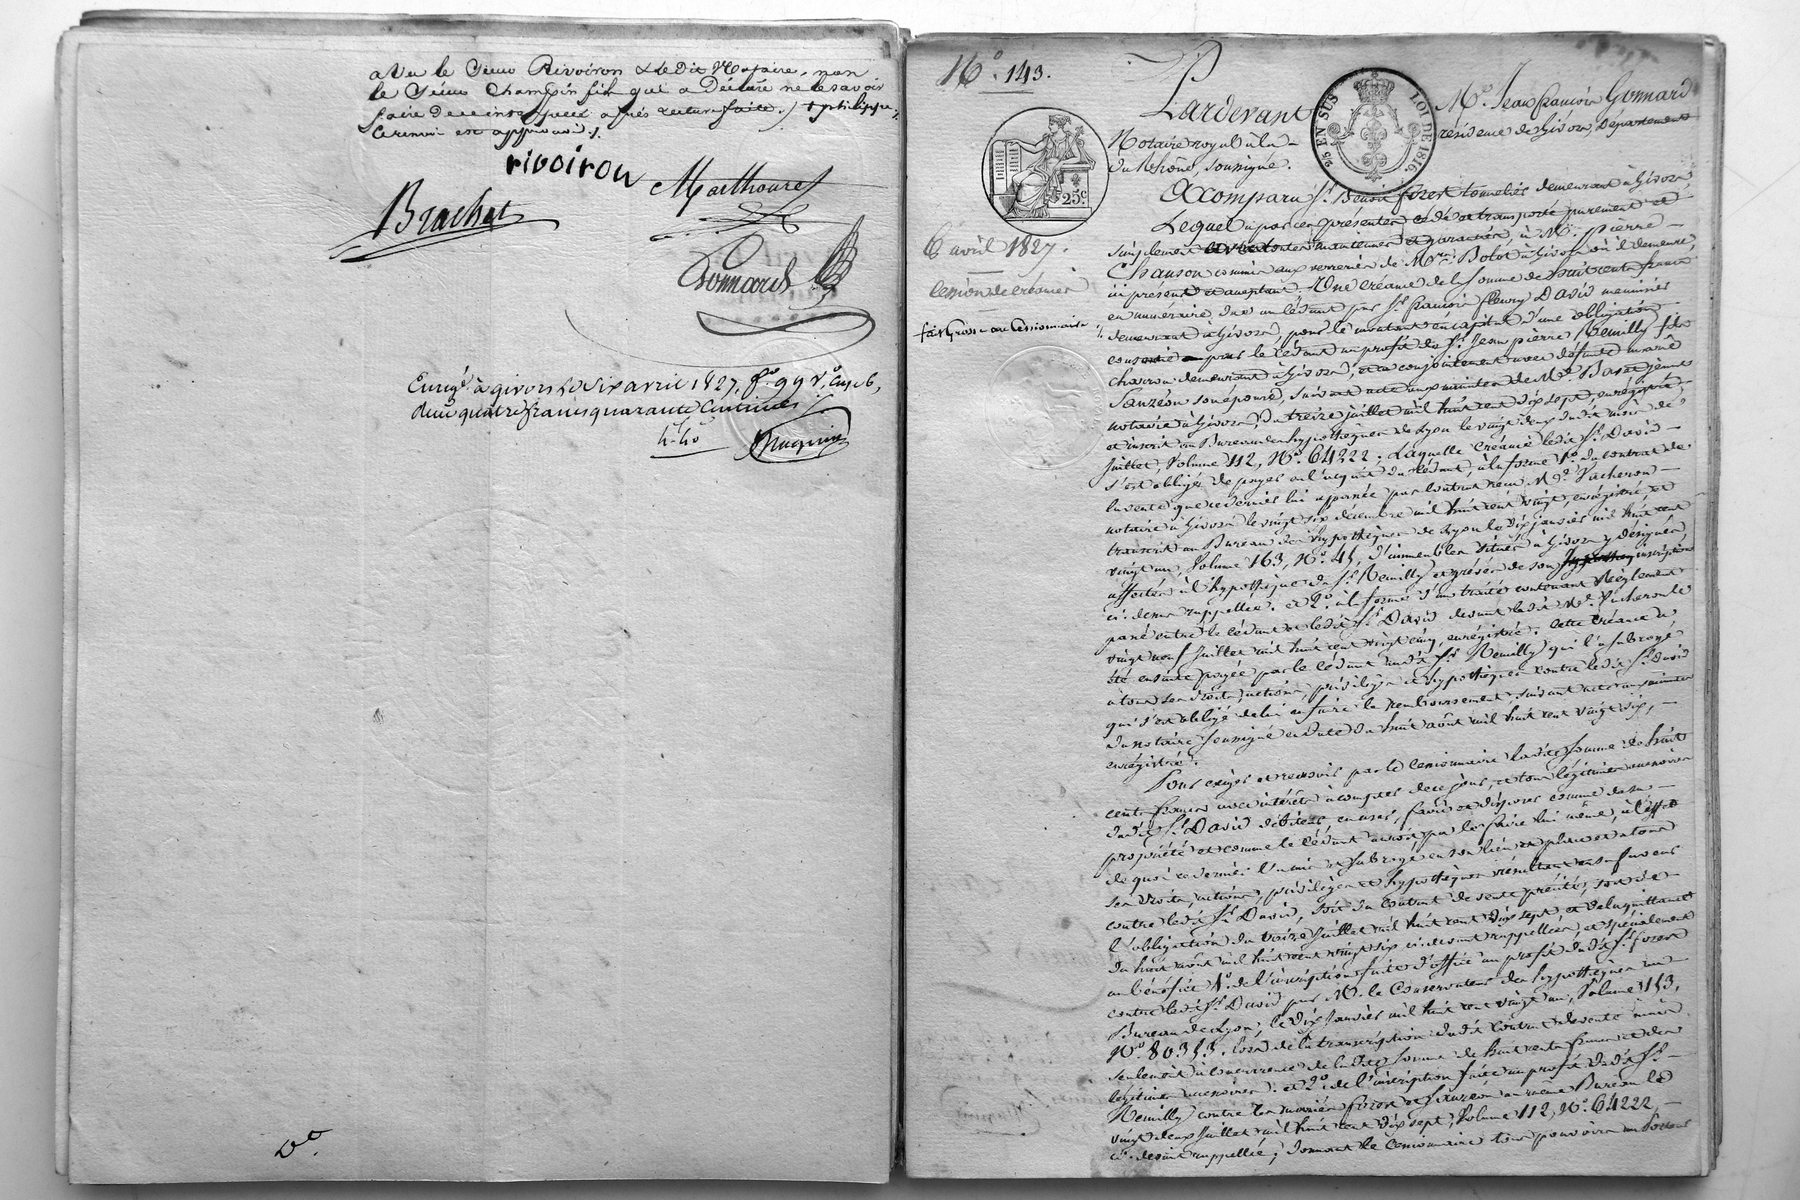 avec le Sieur Rivoiron & ledit Notaire, non
le Sieur Champin fils qui a Déclaré ne le savoir
faire de ce interpellé après lecture faite ./. + philippe
Ce renvoi est approuvé ./.
rivoiron
Marthouret
Brachet
Gonnard
Enreg.é à givors le dix avril 1827, f.o 99 v.o Case 6,
reçu quatre francs quarante Centimes
4.f 40.c
D.o
N.o 143.
Pardevant M.e Jean françois Gonnard
Notaire royal à la résidence de Givors, Département
du Rhône, soussigné.
25 EN SUS LOI DE 1816
25c
6 avril 1827.
Cession de créance
fait Grosse au Cessionnaire
A comparu S.r Benoit forest tonnelier demeurant à Givors
Lequel a par ces présentes cédé et transporté purement et
simplement avec toutes maintenues et garanties à M.r pierre
Chanson commis aux verreries de M.rs Bolot à Givors où il demeure,
ici présent et acceptant Une créance de la somme de huit cents francs
en numéraire, due au cédant par S.r françois fleury David menuisier
demeurant à Givors pour le montant en capital d'une obligation
consentie par le cédant au profit du S.r Jean pierre Remilly fils
charron demeurant à Givors, et conjointement avec défunte marie
Sauzéon son épouse, suivant acte aux minutes de M.e Bosc jeune
notaire à Givors, du treize juillet mil huit cent dix sept, enregistré,
et inscrit au Bureau des hypothèques de Lyon le vingt deux dudit mois de
juillet, Volume 112, N.o 64222. Laquelle créance ledit S.r David
s'est obligé de payer en l'acquit du cédant, à la forme 1.o du contrat de
la vente que ce dernier lui a passée par contrat reçu M.e Vacheron
notaire à Givors le vingt six décembre mil huit cent vingt, enregistré, et
transcrit au Bureau des hypothèques de Lyon le dix janvier mil huit cent
vingt un, Volume 163, N.o 45, d'immeubles situés à Givors y désignés,
affectés à l'hypothèque du S.r Remilly et grévés de son inscription
ci-dessus rappellée. et 2.o à la forme d'un traité contenant Réglement
passé entre le cédant et ledit S.r David devant ledit M.e Vacheron le
vingt neuf juillet mil huit cent vingt cinq, enregistré. Cette créance a
été ensuite payée par le cédant audit S.r Remilly qui l'a subrogé
à tous ses droits, actions, privilèges et hypothèques contre ledit S.r David
qui s'est obligé de lui en faire le remboursement, suivant acte aux minutes
du notaire soussigné en date du huit août mil huit cent vingt six,
enregistré.
Pour exiger et recevoir par le cessionnaire ladite somme de huit
cents francs avec intérêts à compter de ce jour, et tous légitimes accessoires
dudit S.r David débiteur, en user, faire et disposer comme de sa
propriété et comme le cédant auroit pu le faire lui même, à l'effet
de quoi ce dernier l'a mis et subrogé en son lieu et place et à tous
ses droits, actions, privilèges et hypothèques résultant en sa faveur
contre ledit S.r David, soit du contrat de vente précité, soit de
l'obligation du treize juillet mil huit cent dix sept et de la quittance
du huit août mil huit cent vingt six ci-devant rappellés, et spécialement
au bénéfice 1.o de l'inscription faite d'office au profit dudit S.r forest
contre ledit S.r David par M. le Conservateur des hypothèques au
Bureau de Lyon, le dix janvier mil huit cent vingt un, Volume 153,
N.o 80353. lors de la transcription dudit contrat de vente mais
seulement à concurrence de ladite somme de huit cents francs et des
légitimes accessoires. et 2.o de l'inscription faite au profit dudit S.r
Remilly contre les mariés forest et Sauzéon au même Bureau le
vingt deux juillet mil huit cent dix sept, Volume 112, N.o 64222,
ci-devant rappellée; donnant le cessionnaire tous pouvoirs